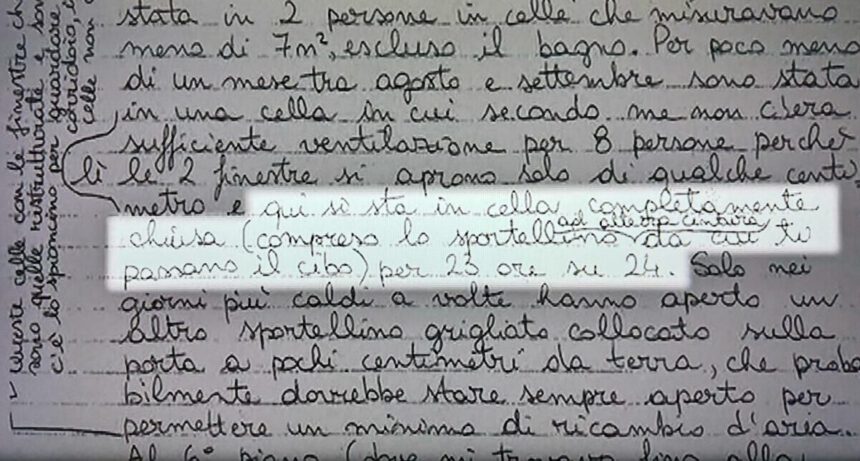 stata in 2 persone in celle che misuravano
meno di 7m², escluso il bagno. Per poco meno
di un mese tra agosto e settembre sono stata
in una cella in cui secondo me non c'era
sufficiente ventilazione per 8 persone perché
lì le 2 finestre si aprono solo di qualche centi
metro e qui si sta in cella completamente
ad altezza cintura
chiusa (compreso lo sportellino da cui ti
passano il cibo) per 23 ore su 24. Solo nei
giorni più caldi a volte hanno aperto un
altro sportellino grigliato collocato sulla
porta a pochi centimetri da terra, che proba
bilmente dovrebbe stare sempre aperto per
permettere un minimo di ricambio d'aria.
Al 6° piano (dove mi trovavo fino alla
Queste celle con le finestre ch
sono quelle ristrutturate e son
c'è lo spioncino per guardare
corridoio, i
celle non